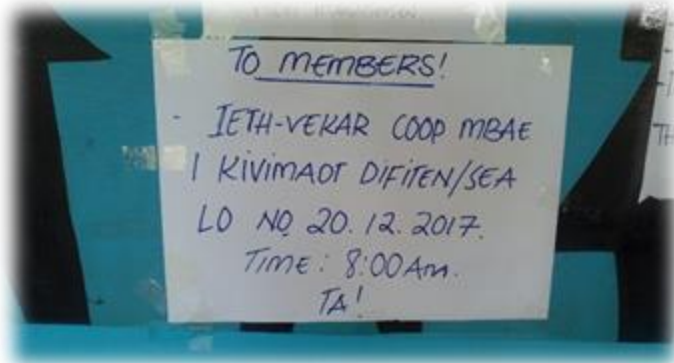 TO MEMBERS!
- IETH-VEKAR COOP MBAE
I KIVIMAOT DIFITEN/SEA
LO NO 20.12.2017.
TIME: 8:00Am.
TA!